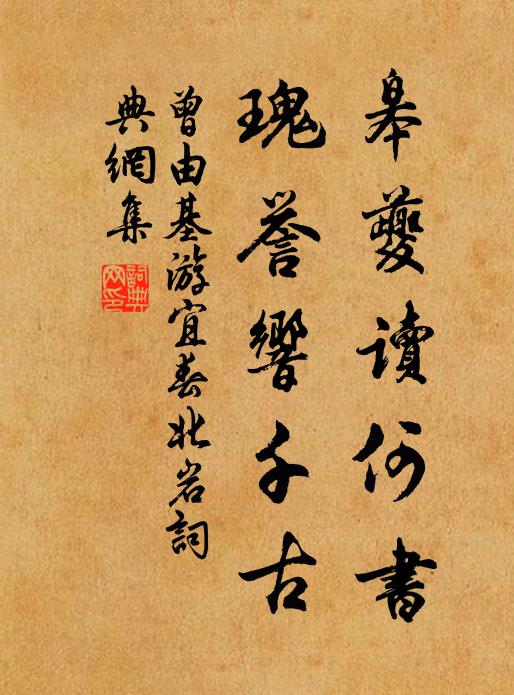 皋夔讀何書
瑰譽響千古
曾由基游宜春北岩詞
典網集
詞典網印